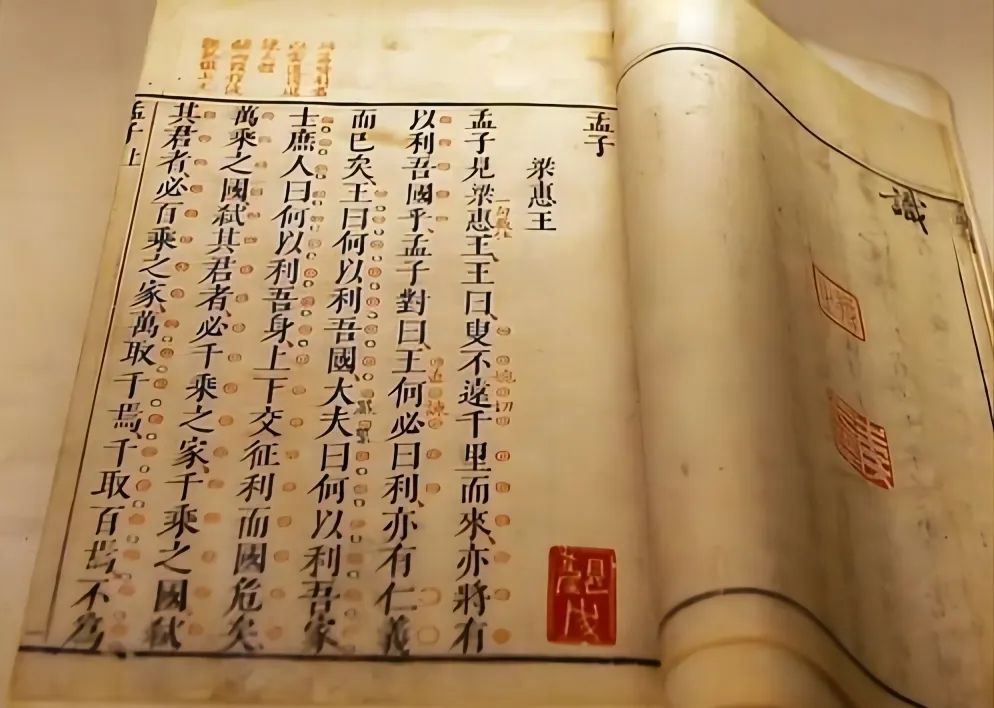 識
孟子
梁惠王
孟子見梁惠王、王曰、叟不遠千里而來、亦將有
以利吾國乎、孟子對曰、王何必曰利、亦有仁義
而已矣、王曰何以利吾國、大夫曰何以利吾家
士庶人曰何以利吾身、上下交征利而國危矣
萬乘之國弒其君者、必千乘之家、千乘之國弒
其君者、必百乘之家、萬取千焉、千取百焉、不為
孟子上